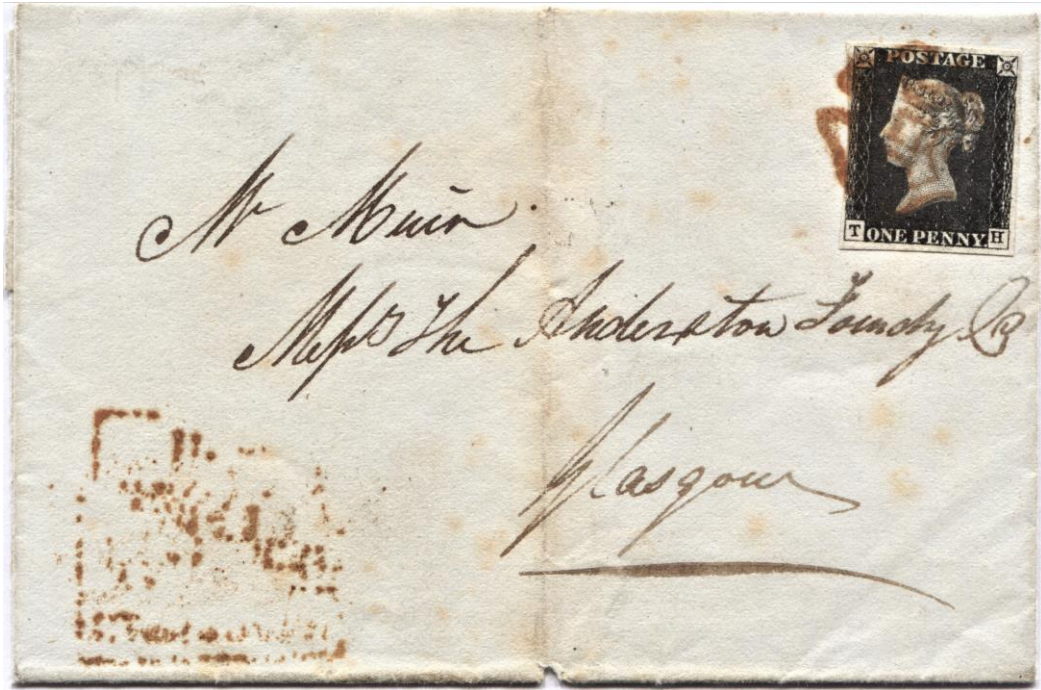 POSTAGE
T ONE PENNY H
Mr Muir
Messrs The Anderston Foundry Co
Glasgow